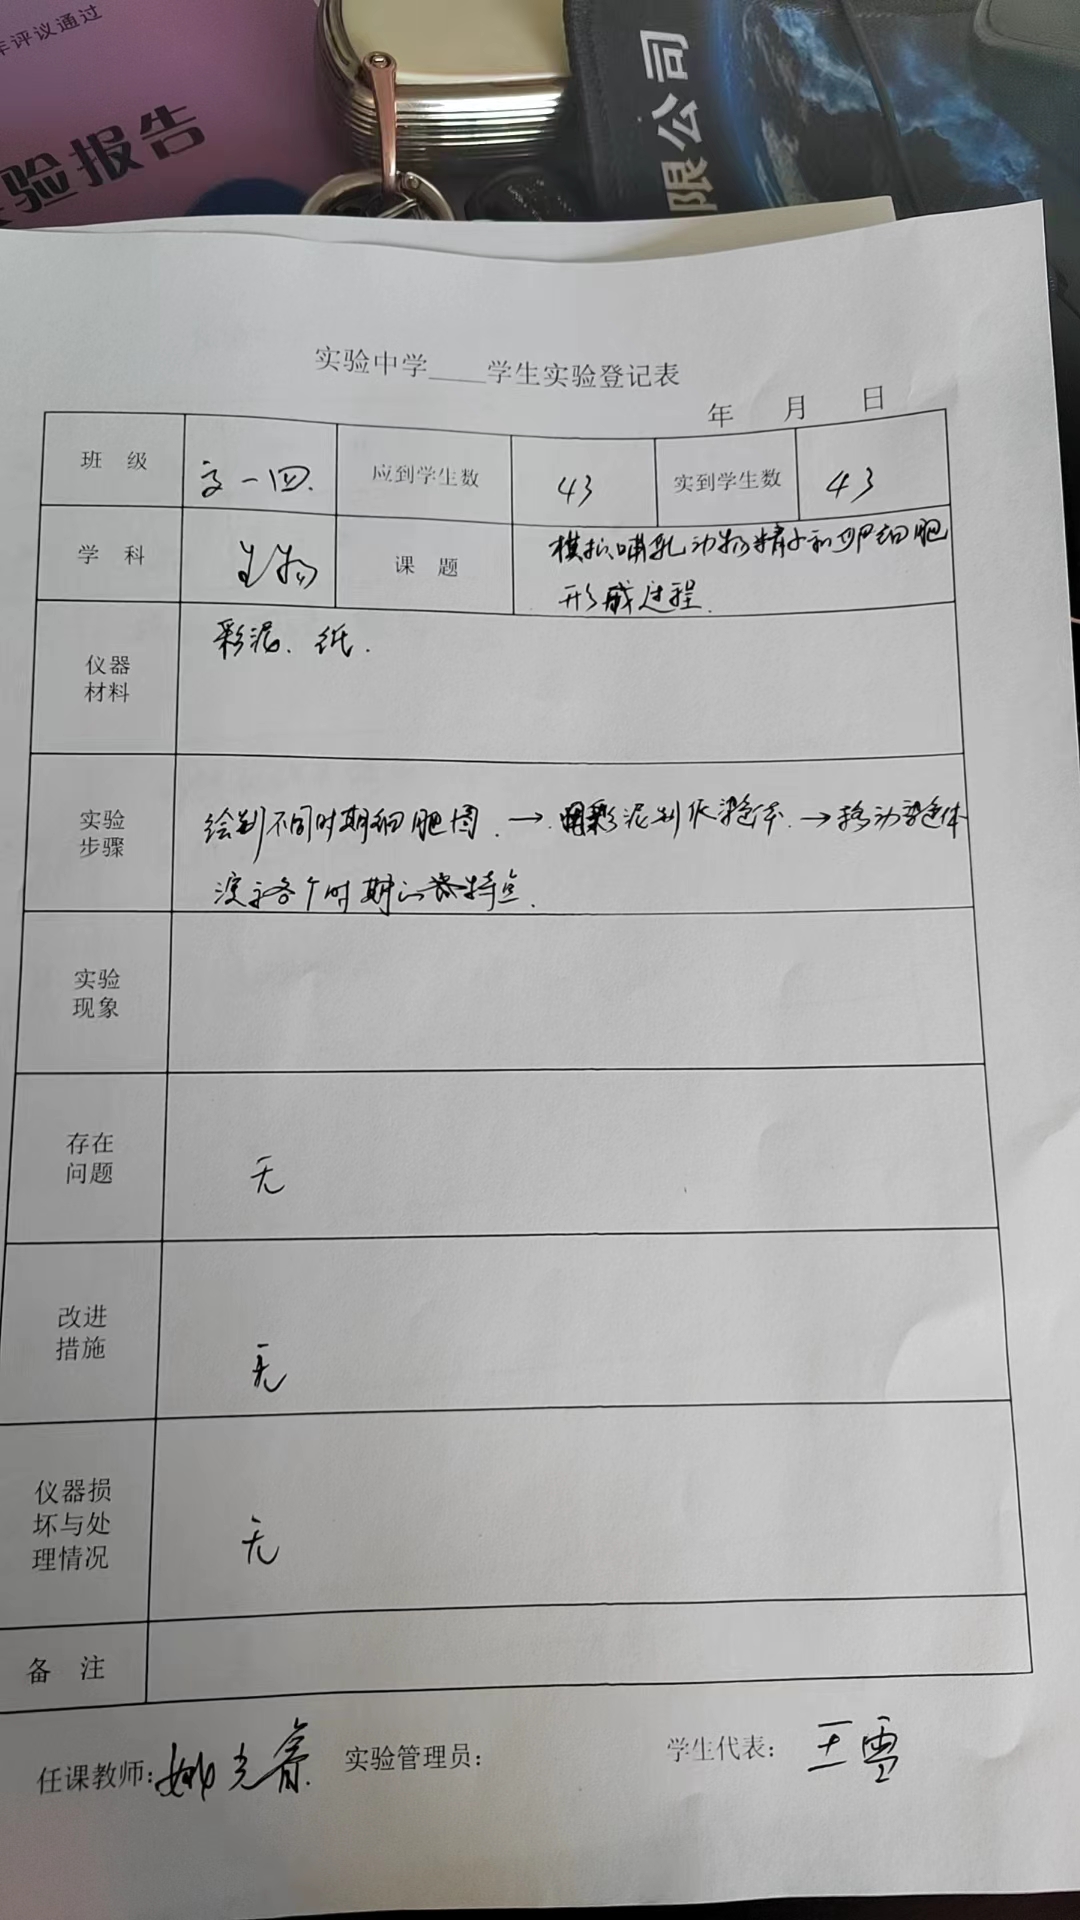 评议通过
验报告
限公司
实验中学____学生实验登记表
年 月 日
班 级 高一四. 应到学生数 43 实到学生数 43
学 科 生物 课 题 模拟哺乳动物精子和卵细胞
形成过程.
仪器
材料
彩泥、纸.
实验
步骤
绘制不同时期细胞图.→用彩泥制作染色体.→移动染色体
演示各个时期的特点.
实验
现象
存在
问题
无
改进
措施
无
仪器损
坏与处
理情况
无
备 注
任课教师: 实验管理员: 学生代表: 王雪